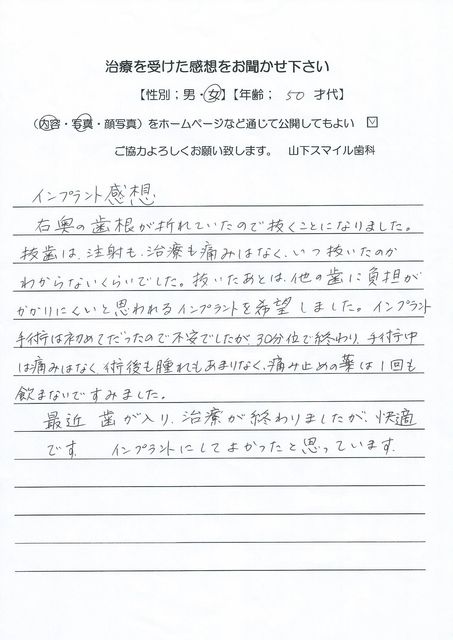 治療を受けた感想をお聞かせ下さい
【性別；男・女】【年齢； 50 才代】
（内容・写真・顔写真）をホームページなど通じて公開してもよい ☑
ご協力よろしくお願い致します。 山下スマイル歯科
インプラント感想
右奥の歯根が折れていたので抜くことになりました。
抜歯は、注射も、治療も痛みはなく、いつ抜いたのか
わからないくらいでした。抜いたあとは、他の歯に負担が
かかりにくいと思われるインプラントを希望しました。インプラント
手術は初めてだったので不安でしたが、30分位で終わり、手術中
は痛みはなく、術後も腫れもあまりなく、痛み止めの薬は1回も
飲まないですみました。
最近 歯が入り、治療が終わりましたが、快適
です。 インプラントにしてよかったと思っています。